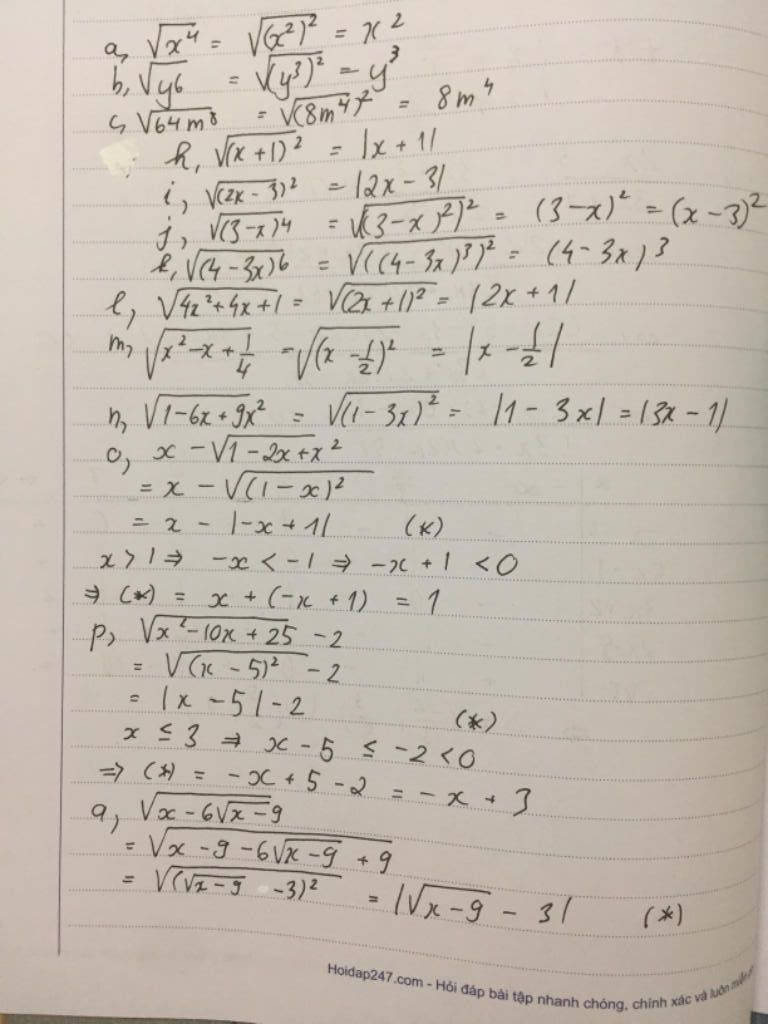 a, √x⁴ = √(x²)² = x²
b, √y6 = √(y³)² = y³
c, √64m⁸ = √(8m⁴)² = 8m⁴
h, √(x+1)² = |x+1|
i, √(2x-3)² = |2x-3|
j, √(3-x)4 = √((3-x)²)² = (3-x)² = (x-3)²
k, √(4-3x)6 = √((4-3x)³)² = (4-3x)³
l, √4x²+4x+1 = √(2x+1)² = |2x+1|
m, √x²-x+1/4 = √(x-1/2)² = |x-1/2|
n, √1-6x+9x² = √(1-3x)² = |1-3x| = |3x-1|
o, x - √1-2x+x²
= x - √(1-x)²
= x - |-x+1| (*)
x > 1 ⇒ -x < -1 ⇒ -x+1 < 0
⇒ (*) = x + (-x+1) = 1
p, √x²-10x+25 - 2
= √(x-5)² - 2
= |x-5| - 2 (*)
x ≤ 3 ⇒ x-5 ≤ -2 < 0
⇒ (*) = -x+5-2 = -x+3
q, √x-6√x-9
= √x-9-6√x-9+9
= √(√x-9 -3)² = |√x-9 - 3| (*)
Hoidap247.com - Hỏi đáp bài tập nhanh chóng, chính xác và luôn miễn